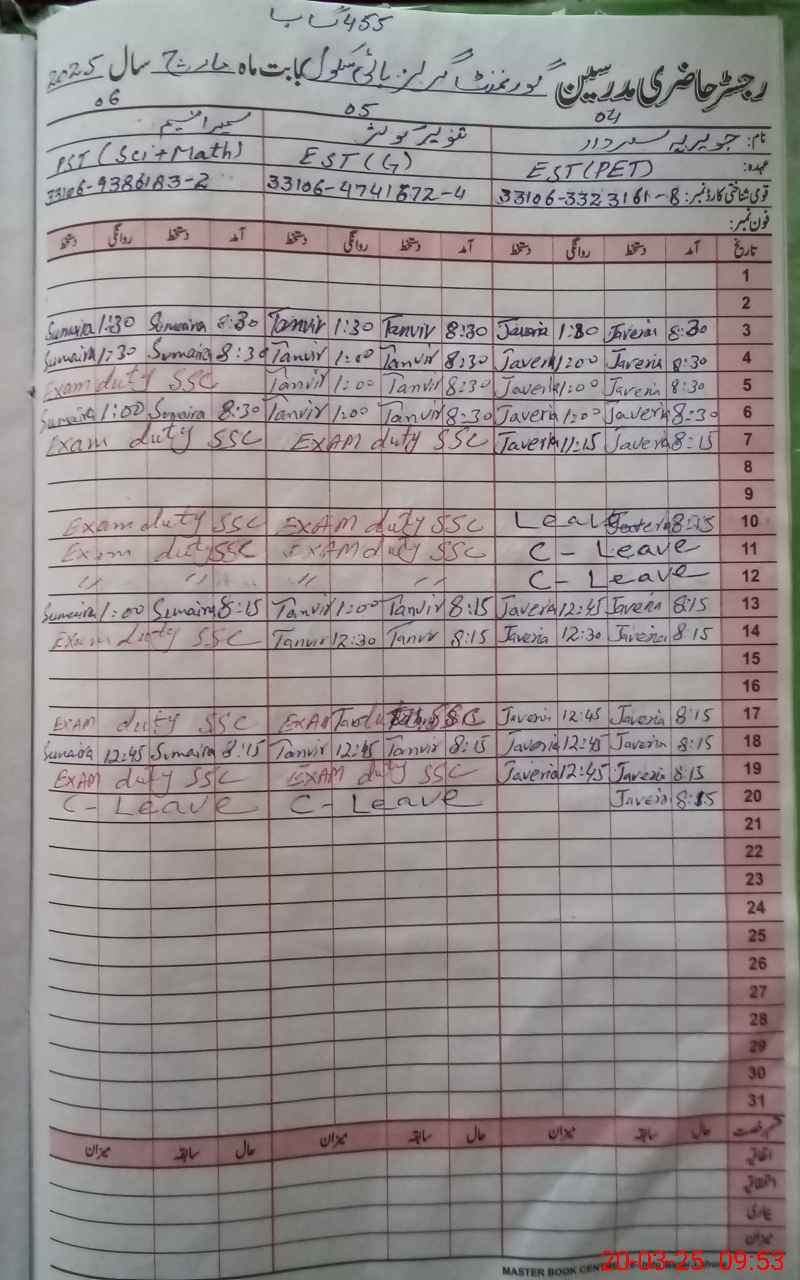 455 گ ب
رجسٹر حاضری مدرسین گورنمنٹ گرلز ہائی سکول بابت ماہ مارچ سال 2025
04 05 06
نام: جویریہ سردار تنویر کوثر سمیرا نسیم
عہدہ: EST (PET) EST (G) PST (Sci + Math)
قومی شناختی کارڈ نمبر: 33106-3323161-8 33106-4741872-4 33106-9386183-2
فون نمبر:
تاریخ آمد دستخط روانگی دستخط آمد دستخط روانگی دستخط آمد دستخط روانگی دستخط
1
2
Sumaira 1:30 Sumaira 8:30 Tanvir 1:30 Tanvir 8:30 Javeria 1:30 Javeria 8:30 3
Sumaira 1:30 Sumaira 8:30 Tanvir 1:00 Tanvir 8:30 Javeria 1:00 Javeria 8:30 4
Exam duty SSC Tanvir 1:00 Tanvir 8:30 Javeria 1:00 Javeria 8:30 5
Sumaira 1:00 Sumaira 8:30 Tanvir 1:00 Tanvir 8:30 Javeria 1:00 Javeria 8:30 6
Exam duty SSC EXAM duty SSC Javeria 11:15 Javeria 8:15 7
8
9
Exam duty SSC EXAM duty SSC Leave 8:15 10
Exam duty SSC EXAM duty SSC C-Leave 11
〃 〃 〃 〃 C-Leave 12
Sumaira 1:00 Sumaira 8:15 Tanvir 1:00 Tanvir 8:15 Javeria 12:45 Javeria 8:15 13
Exam duty SSC Tanvir 12:30 Tanvir 8:15 Javeria 12:30 Javeria 8:15 14
15
16
EXAM duty SSC EXAM duty SSC Javeria 12:45 Javeria 8:15 17
Sumaira 12:45 Sumaira 8:15 Tanvir 12:45 Tanvir 8:15 Javeria 12:45 Javeria 8:15 18
EXAM duty SSC EXAM duty SSC Javeria 12:45 Javeria 8:15 19
C-Leave C-Leave Javeria 8:15 20
21
22
23
24
25
26
27
28
29
30
31
قسم رخصت حال سابقہ میزان حال سابقہ میزان حال سابقہ میزان
اتفاقیہ
استحقاقیہ
بیماری
میزان
MASTER BOOK CENT
20-03-25 09:53